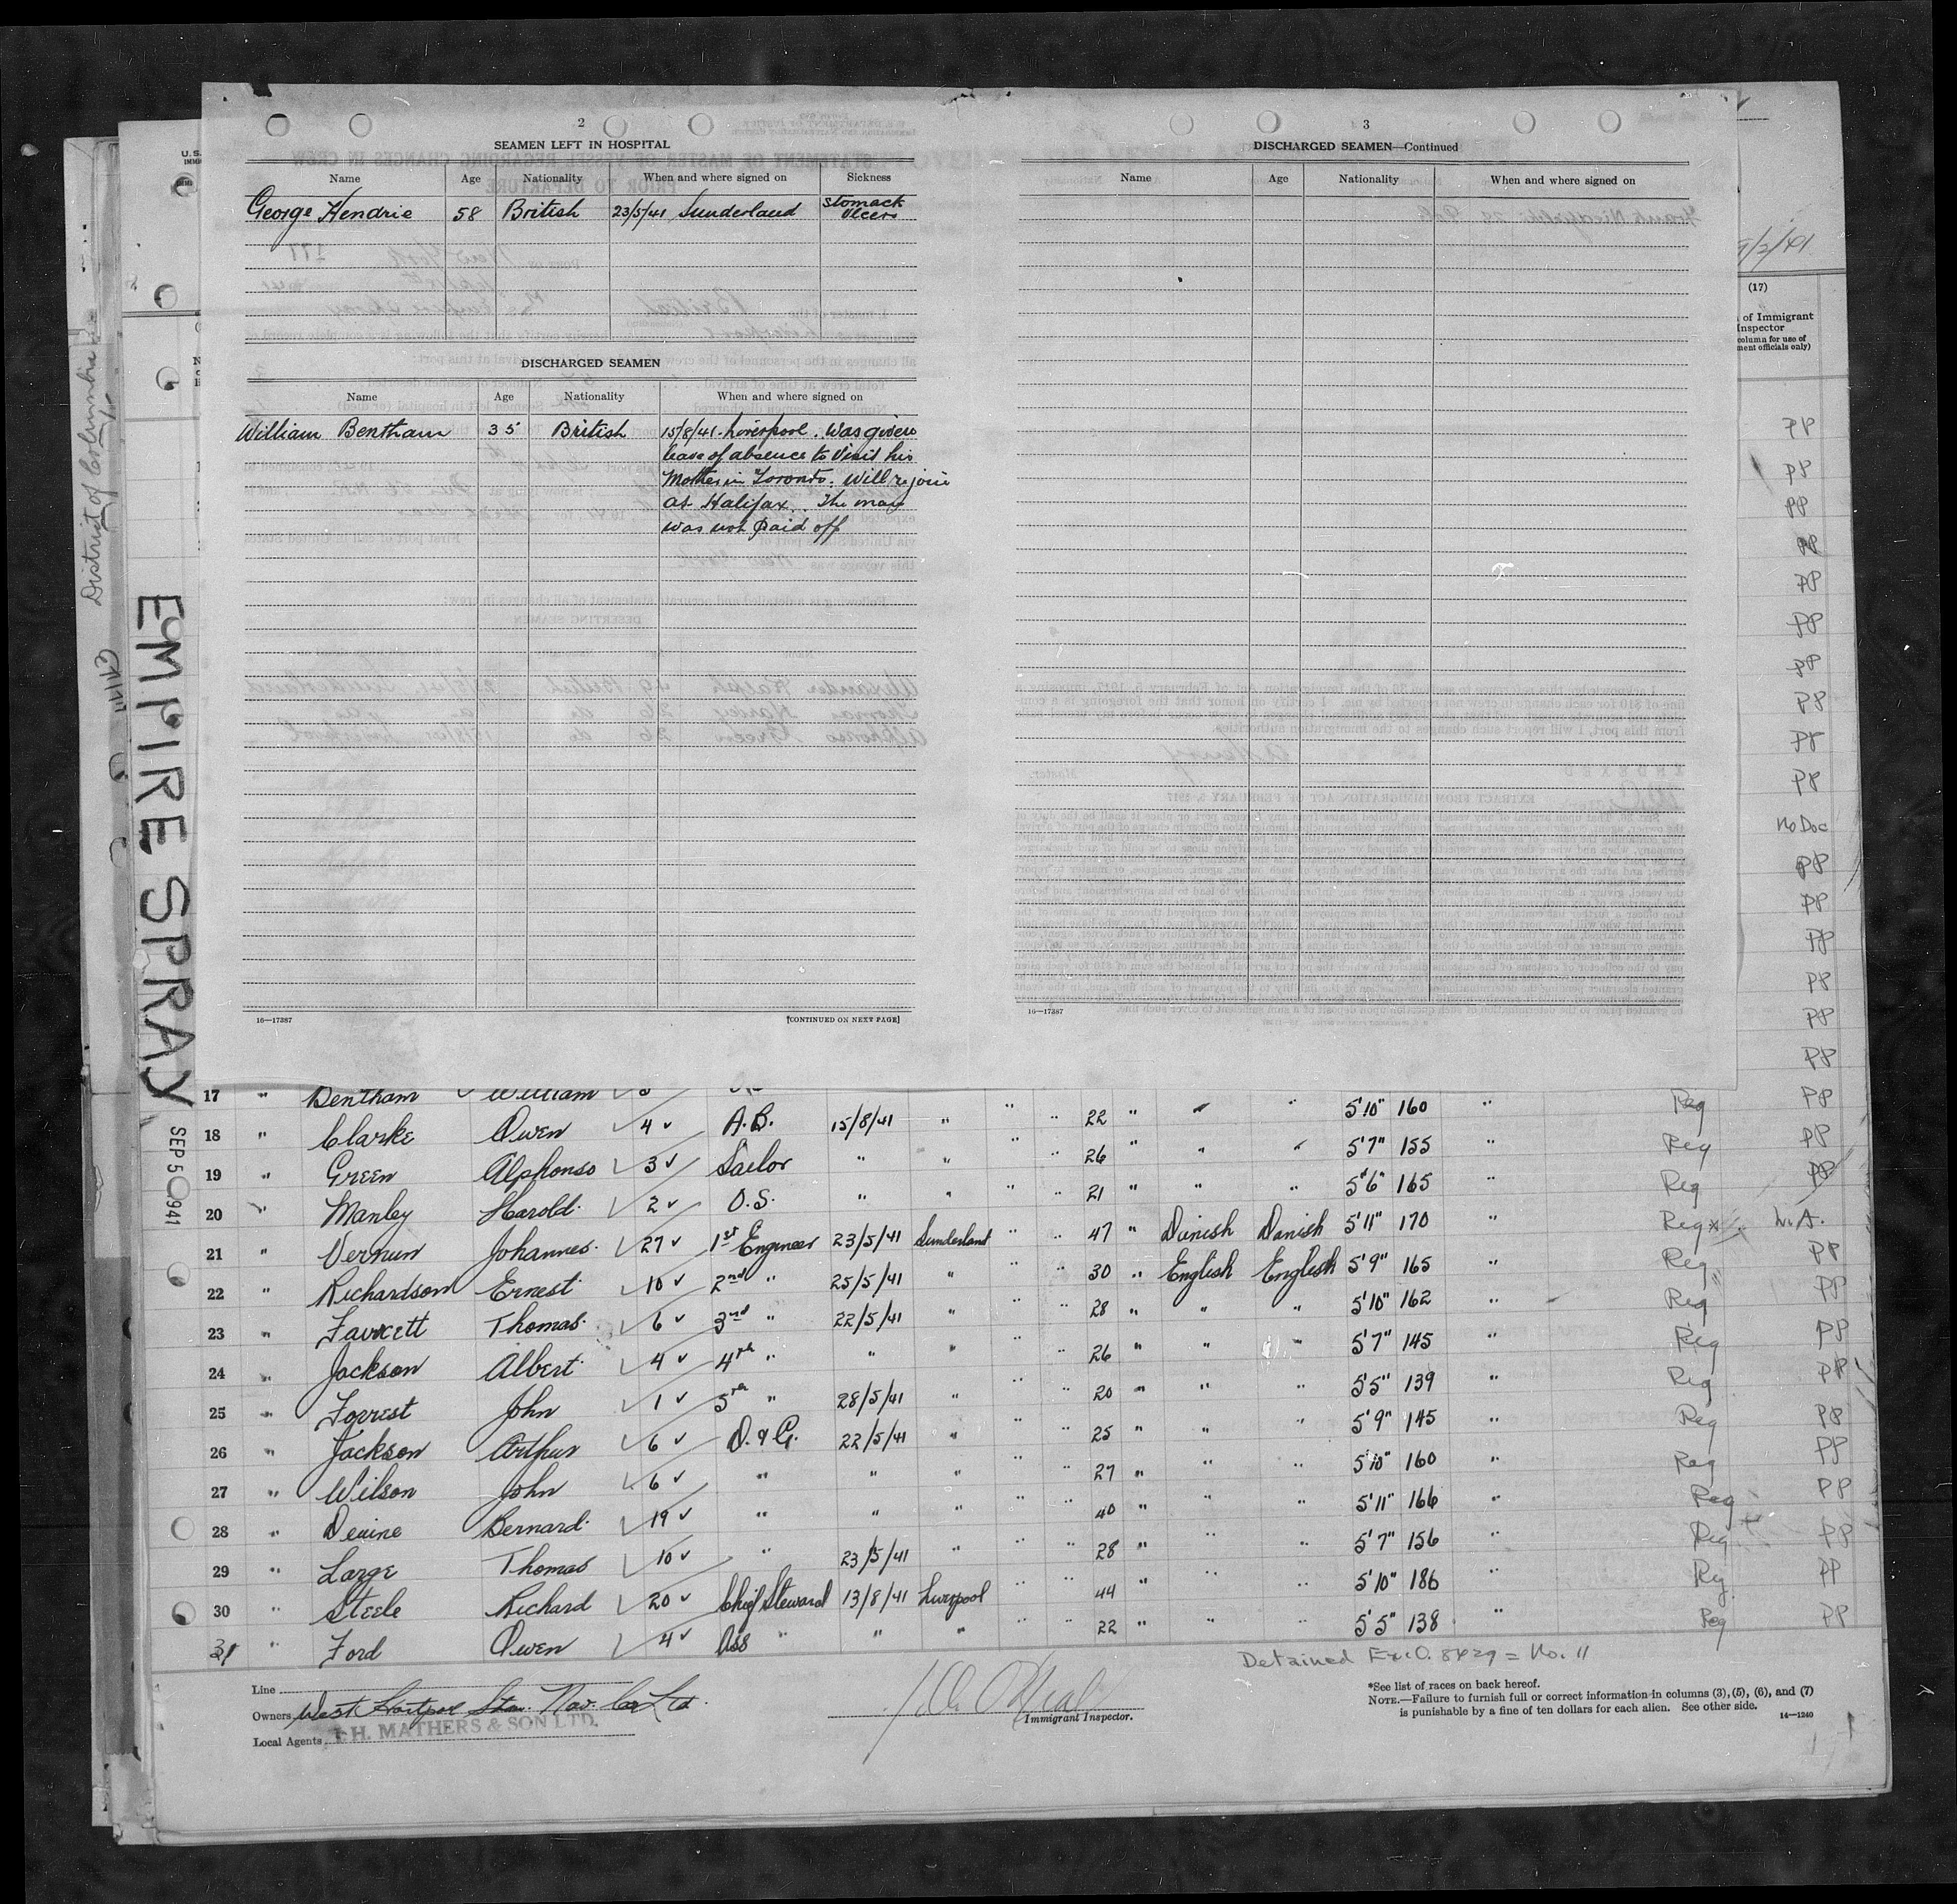 2
SEAMEN LEFT IN HOSPITAL
Name Age Nationality When and where signed on Sickness
George Hendrie 58 British 23/5/41 Sunderland Stomack Ulcers
DISCHARGED SEAMEN
Name Age Nationality When and where signed on
William Bentham 35 British 15/8/41 Liverpool. Was given
leave of absence to Visit his
Mother in Toronto. Will rejoin
at Halifax. The man
was not paid off
16—17387 [CONTINUED ON NEXT PAGE]
3
DISCHARGED SEAMEN—Continued
Name Age Nationality When and where signed on
16—17387
(17)
of Immigrant
Inspector
column for use of
ment officials only)
PP
PP
PP
PP
PP
PP
PP
PP
PP
PP
No Doc
PP
PP
PP
PP
PP
PP
District of Columbia
EMPIRE SPRAY
SEP 5 1941
17 " Bentham William PP
18 " Clarke Owen 4 A.B. 15/8/41 " " " 22 " " " 5'10" 160 " Reg PP
19 " Green Alphonso 3 Sailor " " " " 26 " " " 5'7" 155 " Reg PP
20 " Manley Harold 2 O.S. " " " " 21 " " " 5'6" 165 " Reg
21 " Vernun Johannes 27 1st Engineer 23/5/41 Sunderland " " 47 " Danish Danish 5'11" 170 " Reg
22 " Richardson Ernest 10 2nd " 25/5/41 " " " 30 " English English 5'9" 165 " Reg PP
23 " Fawcett Thomas 6 3rd " 22/5/41 " " " 28 " " " 5'10" 162 " Reg PP
24 " Jackson Albert 4 4th " " " " " 26 " " " 5'7" 145 " Reg PP
25 " Forrest John 1 5th " 28/5/41 " " " 20 " " " 5'5" 139 " Reg PP
26 " Jackson Arthur 6 D. & G. 22/5/41 " " " 25 " " " 5'9" 145 " Reg PP
27 " Wilson John 6 " " " " " 27 " " " 5'10" 160 " Reg PP
28 " Devine Bernard 19 " " " " " 40 " " " 5'11" 166 " Reg PP
29 " Large Thomas 10 " 23/5/41 " " " 28 " " 5'7" 156 " Reg PP
30 " Steele Richard 20 Chief Steward 13/8/41 Liverpool " " 44 " " " 5'10" 186 " Reg PP
31 " Ford Owen 4 Ass " " " " " 22 " " " 5'5" 138 " Reg PP
Detained Ex. O. 8429 = No. 11
Line
Owners West Hartpool Stm. Nav. Co Ltd.
Local Agents T. H. MATHERS & SON LTD.
Immigrant Inspector.
*See list of races on back hereof.
NOTE.—Failure to furnish full or correct information in columns (3), (5), (6), and (7)
is punishable by a fine of ten dollars for each alien. See other side.
14—1240